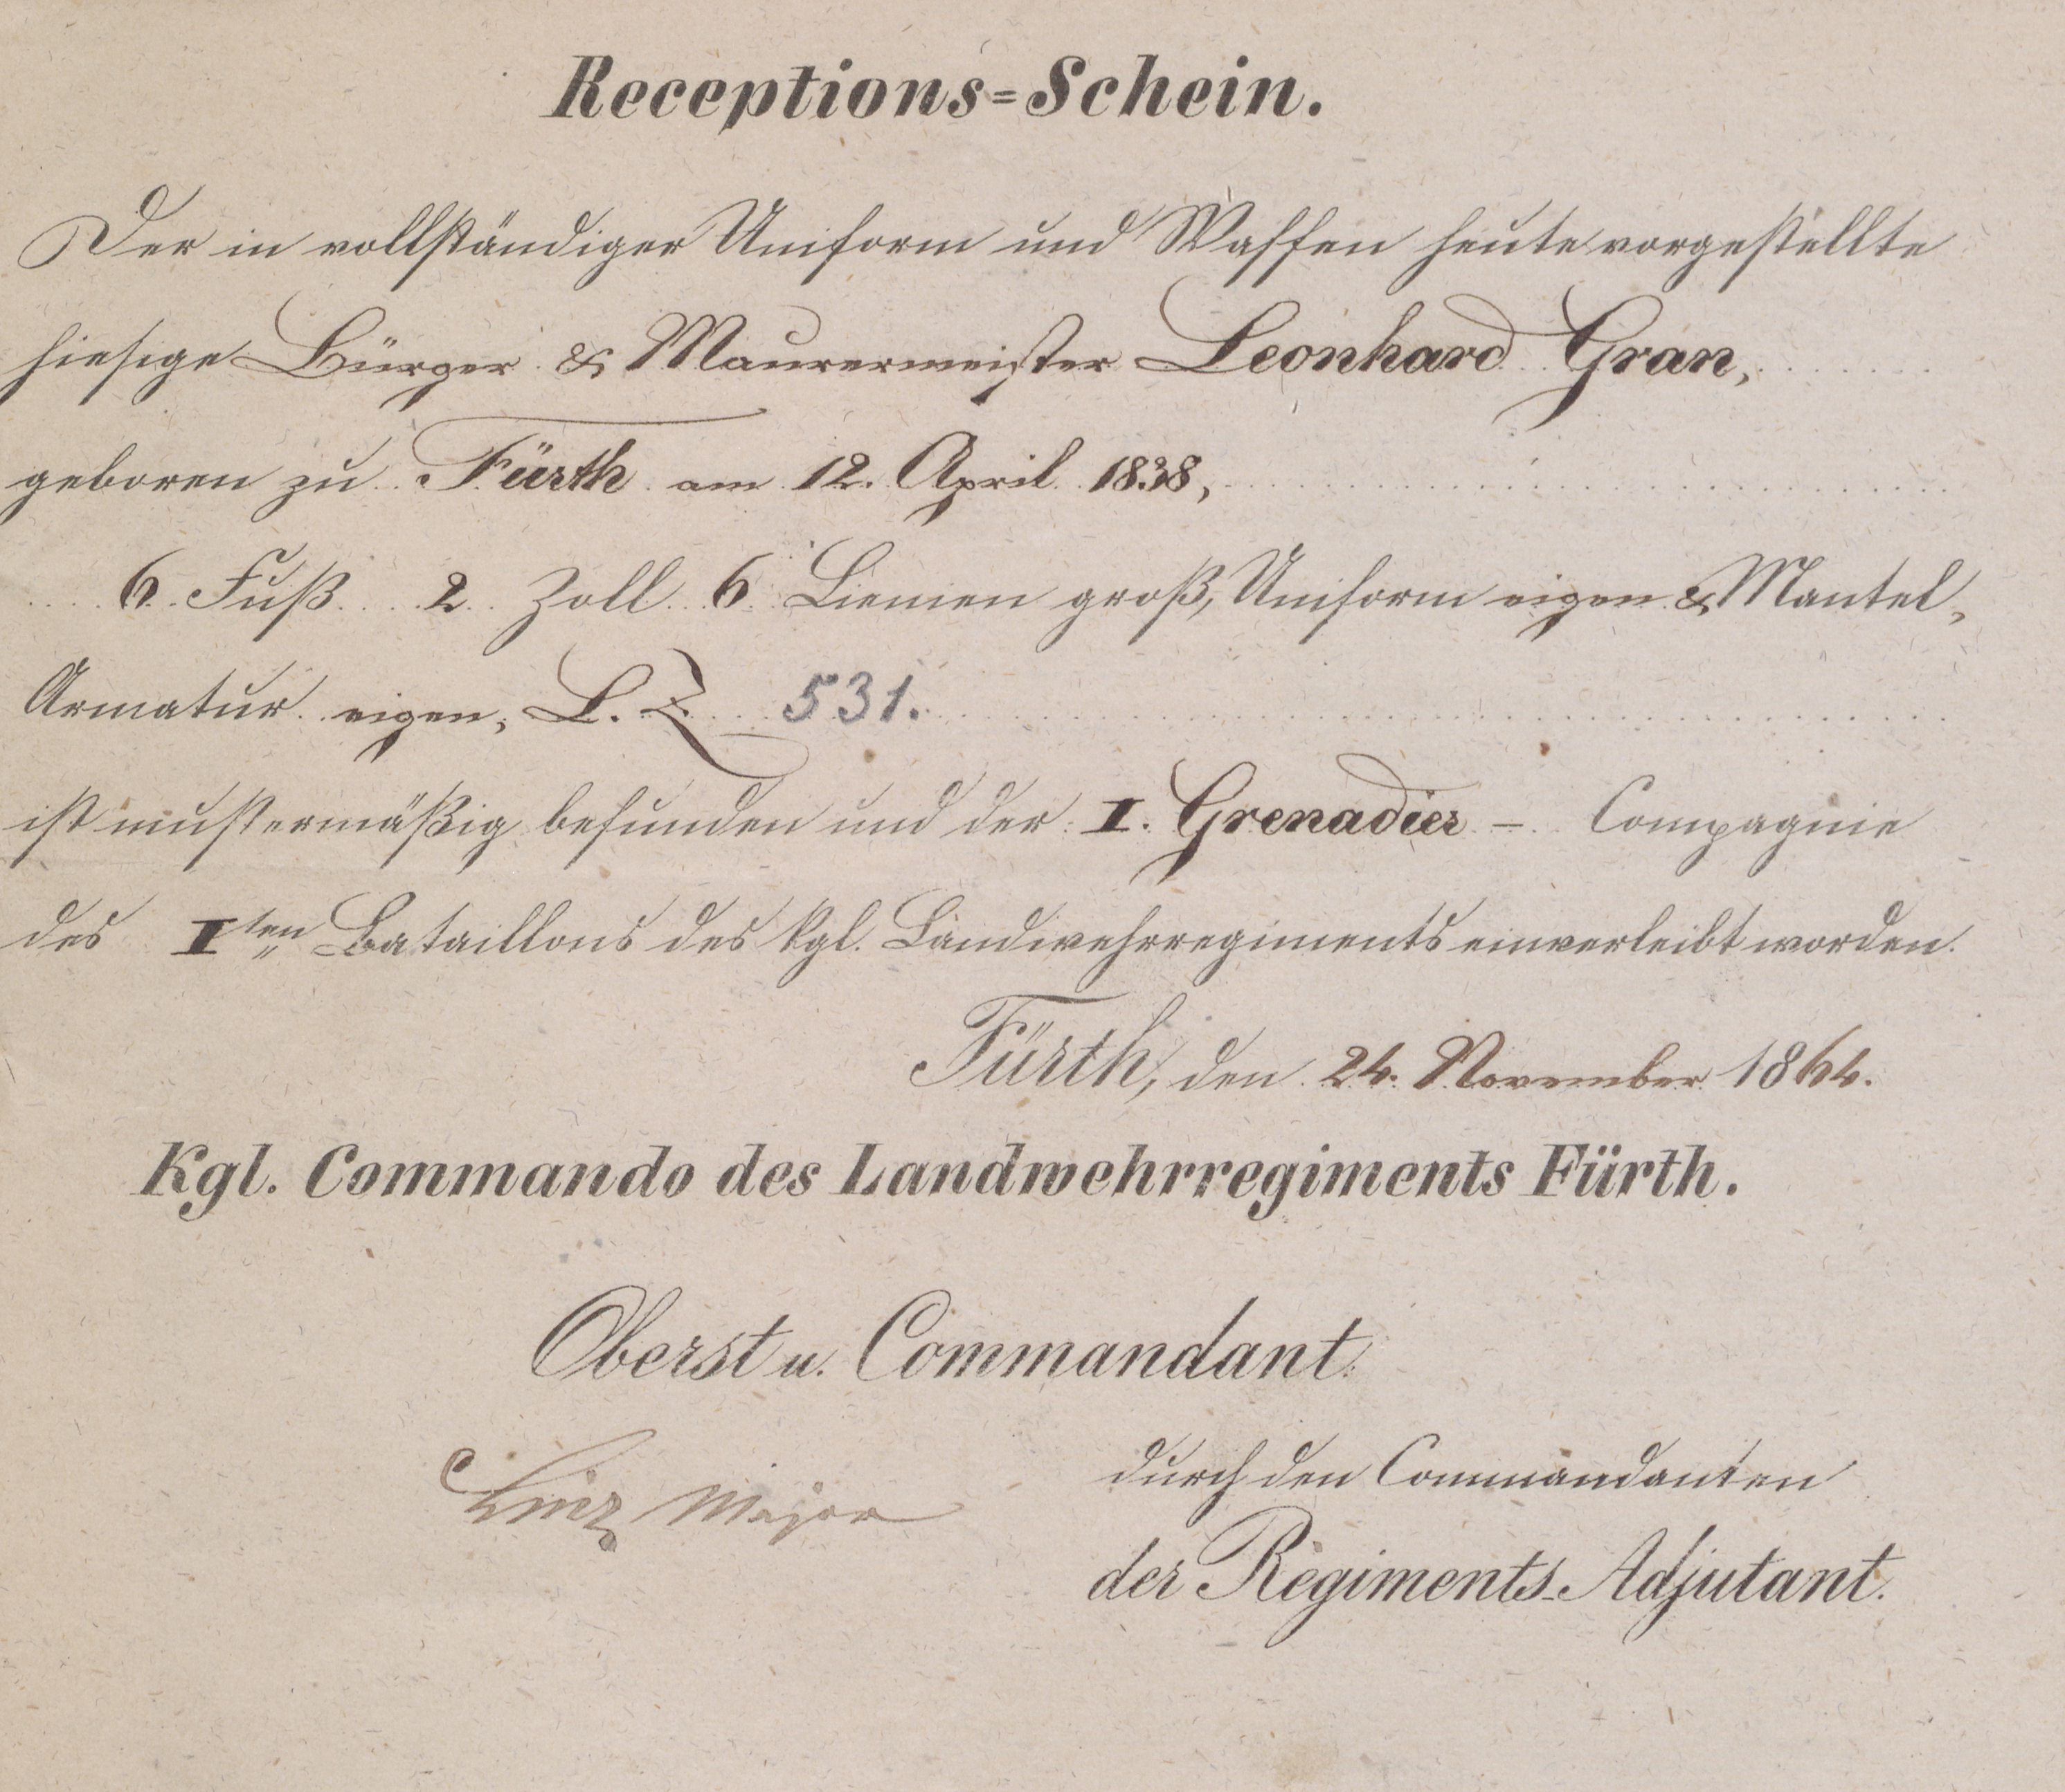 Receptions=Schein.
Der in vollständiger Uniform und Waffen heute vorgestellte
hiesige Bürger & Maurermeister Leonhard Gran,
geboren zu Fürth am 12. April 1838,
6 Fuß 2 Zoll 6 Linien groß, Uniform eigen & Mantel,
Armatur eigen, L. Z. 531.
ist mustermäßig befunden und der I. Grenadier - Compagnie
des I ten Bataillons des kgl. Landwehrregiments einverleibt worden.
Fürth, den 24. November 1864.
Kgl. Commando des Landwehrregiments Fürth.
Oberst u. Commandant.
Major
durch den Commandanten
der Regiments-Adjutant.